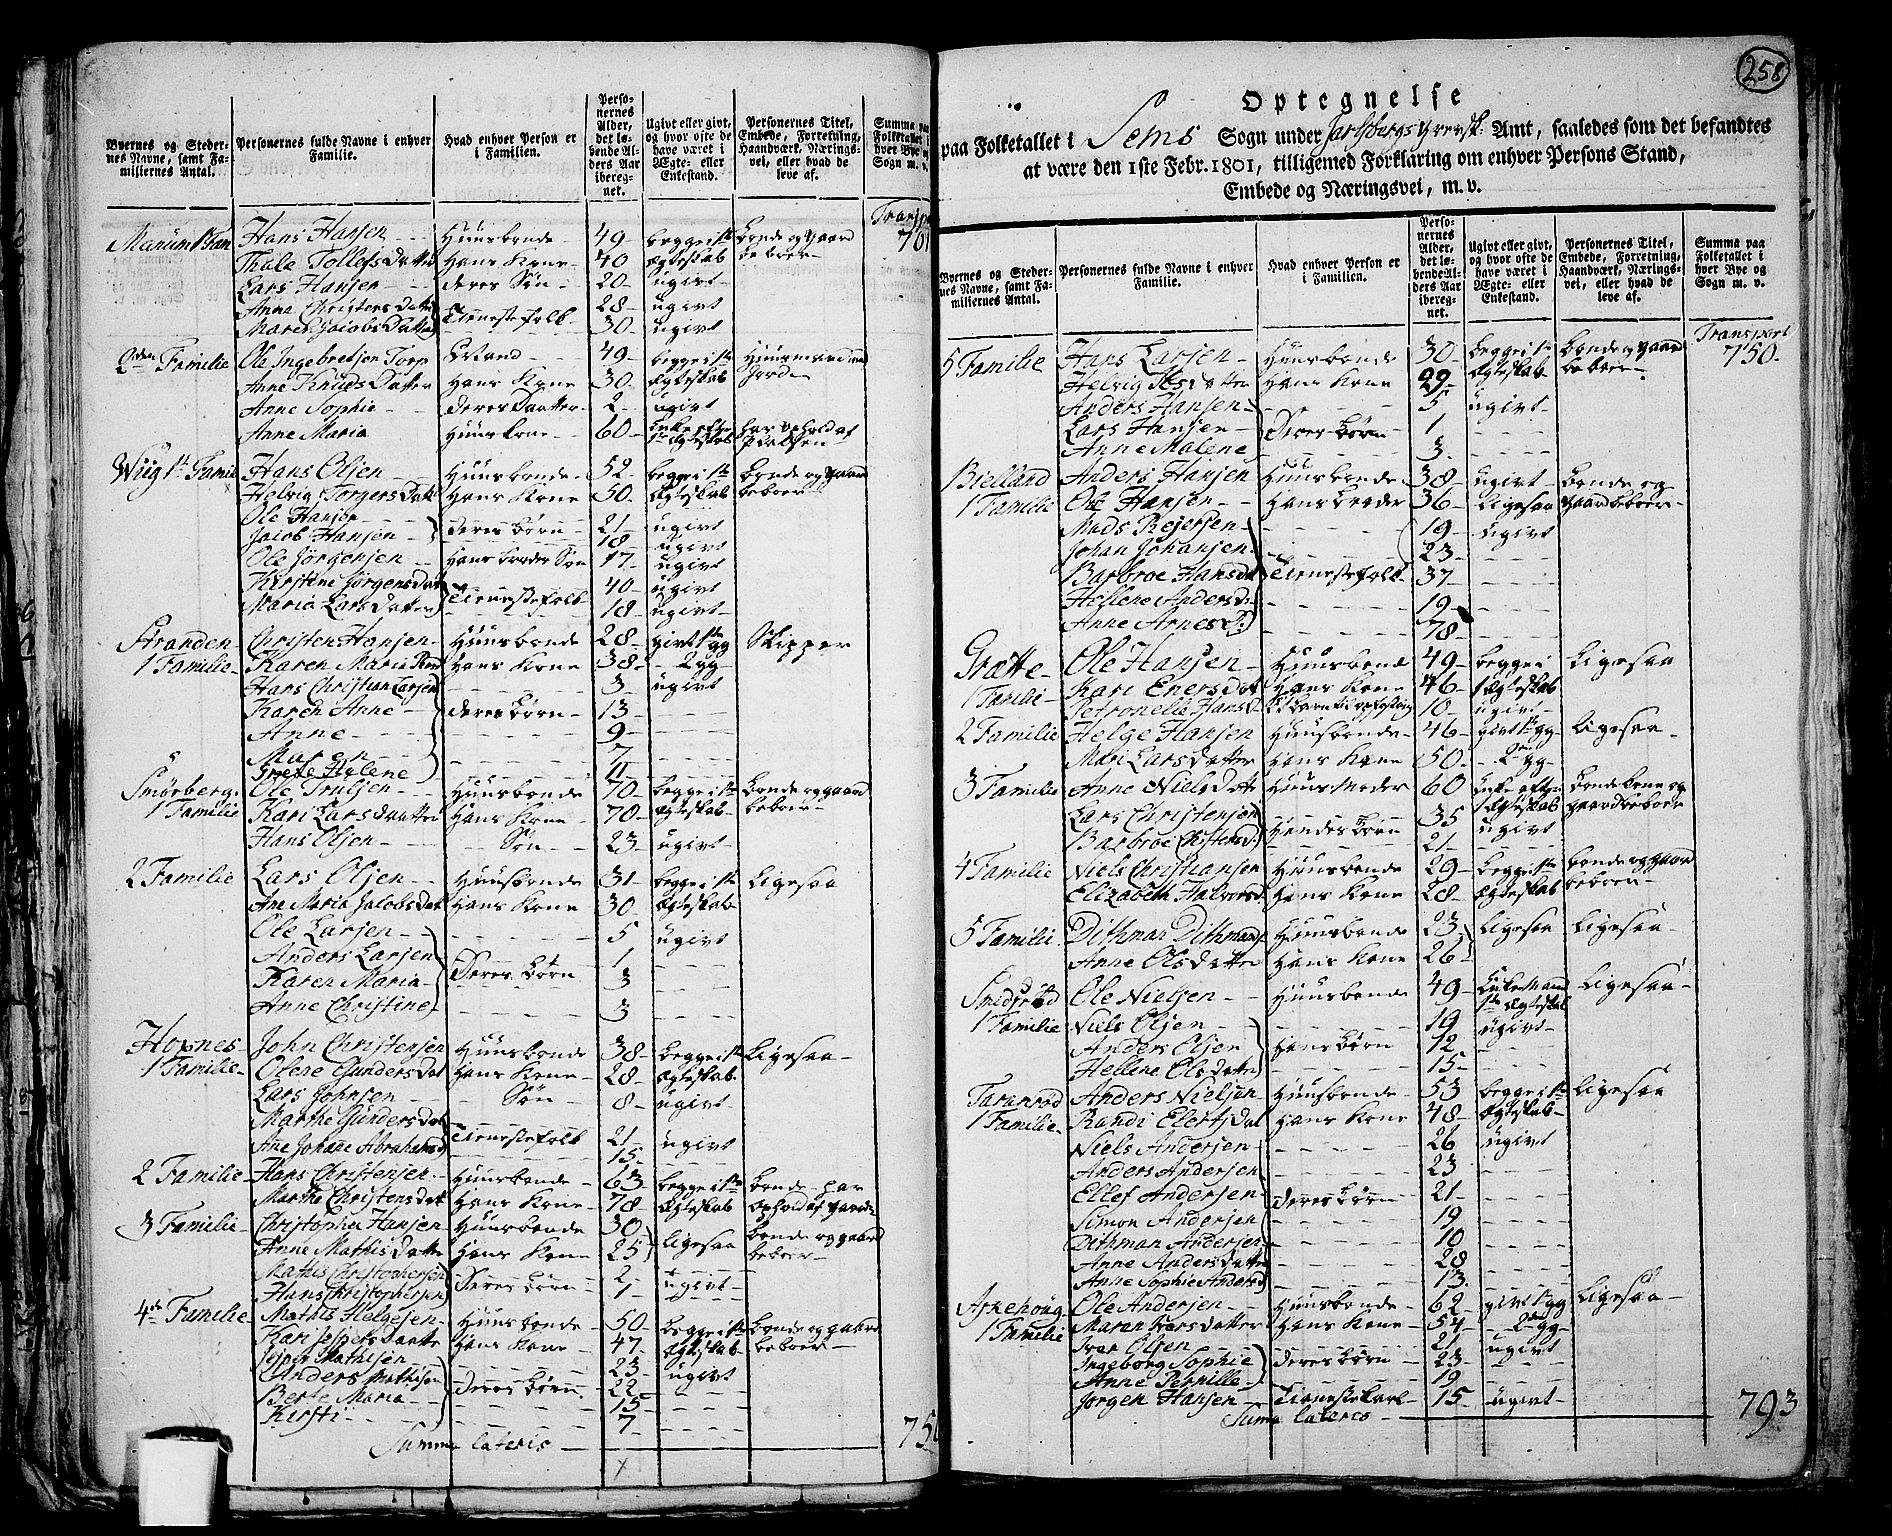 Byernes og Stedernes Navne, samt Familiernes Antal.
Personernes fulde Navne i enhver Familie.
Hvad enhver Person er i Familien.
Personernes Alder, det løbende Alders Aar iberegnet.
Ugivt eller givt, og hvor ofte de have været i Ægte- eller Enkestand.
Personernes Titel, Embede, Forretning, Haandværk, Næringsvei, eller hvad de leve af.
Summa paa Folketallet i hver Bye og Sogn m. v.
Transport 701
Hans Hansen Huusbonde 49 begge i 1te bonde og gaard
Thale Tollefs Datter Hans Kone 40 Ægteskab beboer
Lars Hansen deres Søn 20 ugivt
Anne Christens Datter 28 ugivt
Maren Jacobs Datter Tienestefolk 30 ugivt
2den Familie Ole Ingebretsen Torp 49 begge i 1te Huusmand med
Anne Knuds Datter Hans Kone 30 Ægteskab Jord
Anne Sophie deres Datter 2 ugivt
Anne Maria Huuskone 60 Enke efter har ophold af
1te Ægteskab
Wiig 1te Familie Hans Olsen Huusbonde 52 begge i 1te bonde og gaard
Helvig Torgers Datter Hans Kone 50 Ægteskab beboer
Ole Hansen 21 ugivt
Jacob Hansen deres børn 18 ugivt
Ole Jørgensen Hans broders Søn 17 ugivt
Kirstine Jørgens Dat 40 ugivt
Maria Lars Datter Tienestefolk 18 ugivt
Stranden Christen Hansen Huusbonde 28 givt 1te gg Skipper
1 Familie Karen Maria Hans Kone 38 2 gg
Hans Christian Larsen 3 ugivt
Karen Anne deres børn 13
Anne 9
Maren 7
Grete Helene 4
Smørberg Ole Trulsen Huusbonde 70 begge i 1te bonde og gaard
1 Familie Kari Lars Datter Hans Kone 70 Ægteskab beboer
Hans Olsen Søn 23 ugivt
2 Familie Lars Olsen Huusbonde 31 begge i 1te Ligesaa
Ane Maria Jacobs Dat Hans Kone 30 Ægteskab
Ole Larsen 5 ugivt
Anders Larsen 1
Karen Maria Deres børn 3
Anne Christine 3
Hovnes John Christensen Huusbonde 38 begge i 1te Ligesaa
1 Familie Olene Gunders Dat Hans Kone 28 Ægteskab
Lars Johnsen Søn 8 ugivt
Marthe Gunders Dat 21 ugivt
Ane Johane Abrahamsd Tienestefolk 15
2 Familie Hans Christensen Huusbonde 63 begge i 1te bonde har
Marthe Christens Dat Hans Kone 78 Ægteskab ophold af gaarden
3 Familie Christopher Hansen Huusbonde 30 bonde og gaard
Anne Mathis Datte Hans Kone 25 ligesaa beboer
Mathis Christophersen Deres børn 2 ugivt
Hans Christophersen 1
4de Familie Mathis Helgesen Huusbonde 50 begge i 1te bonde og gaard
Kari Jespers Datte Hans Kone 47 Ægteskab beboer
Jesper Mathisen 23 ugivt
Anders Mathisen 22
Berte Maria Deres børn 15
Kirsti 7
Summa lateris 750
258
Optegnelse
paa Folketallet i Sems Sogn under Jarlsbergs Grevsk: Amt, saaledes som det befandtes
at være den 1ste Febr. 1801, tilligemed Forklaring om enhver Persons Stand,
Embede og Næringsvei, m. v.
Byernes og Stedernes Navne, samt Familiernes Antal.
Personernes fulde Navne i enhver Familie.
Hvad enhver Person er i Familien.
Personernes Alder, det løbende Alders Aar iberegnet.
Ugivt eller givt, og hvor ofte de have været i Ægte- eller Enkestand.
Personernes Titel, Embede, Forretning, Haandværk, Næringsvei, eller hvad de leve af.
Summa paa Folketallet i hver Bye og Sogn m. v.
Transport 750
5 Familie Hans Larsen Huusbonde 30 begge i 1te bonde og gaard
Helvig Datter Hans Kone 29 Ægteskab beboer
Anders Hansen 5 ugivt
Lars Hansen Deres børn 1
Anne Malene 3
Bielland Anders Hansen Huusbonde 38 ugivt bonde og
1 Familie Ole Hansen Hans broder 36 Ligesaa gaardbeboer
Mads Rejersen 19 ugivt
Johan Johansen 23
Barbroe Hansdat Tienestefolk 37
Hellene Andersd 19
Anne Arnes D 78
Grotte Ole Hansen Huusbonde 49 begge i Ligesaa
1 Familie Kari Eners Dat Hans Kone 46 1 Ægteskab
Petronelle Hans D Et barn til opfostring 10 ugivt
2 Familie Helge Hansen Huusbonde 46 givt 1te gg Ligesaa
Mari Lars datter Hans Kone 50 2den gg
3 Familie Anne Niels Datte Huusmoder 60 Enke efter bonde kone og
1 Ægteskab gaardbeboer
Lars Christensen 35 ugivt
Barbroe Christensd Hendes børn 21
4 Familie Niels Christiansen Huusbonde 29 begge i 1te bonde og gaard
Elizabeth Halvorsd Hans Kone 28 Ægteskab beboer
5 Familie Dithman Dithmands Huusbonde 23 Ligesaa Ligesaa
Anne Ols Datter Hans Kone 26
Smidsrød Ole Nielsen Huusbonde 49 Enkemand Ligesaa
1te Ægteskab
1 Familie Niels Olsen 19 ugivt
Anders Olsen Hans børn 12
Hellene Ols Datter 15
Taranrød Anders Nielsen Huusbonde 53 begge i 1te Ligesaa
1 Familie Randi Elerts Dat Hans Kone 48 Ægteskab
Niels Andersen 26 ugivt
Anders Andersen 23
Ellef Andersen Deres børn 21
Simon Andersen 19
Dithman Andersen 10
Anne Anders Datter 28
Anne Sophie Andersd 13
Askehoug Ole Andersen Huusbonde 62 givt gg Ligesaa
1 Familie Maren Ivers datter Hans Kone 54 2den gg
Ivar Olsen 21 ugivt
Ingeborg Sophie Deres børn 23
Anne Pernille 19
Jørgen Hansen Tienestekarl 15 ugivt
Suma lateres 793